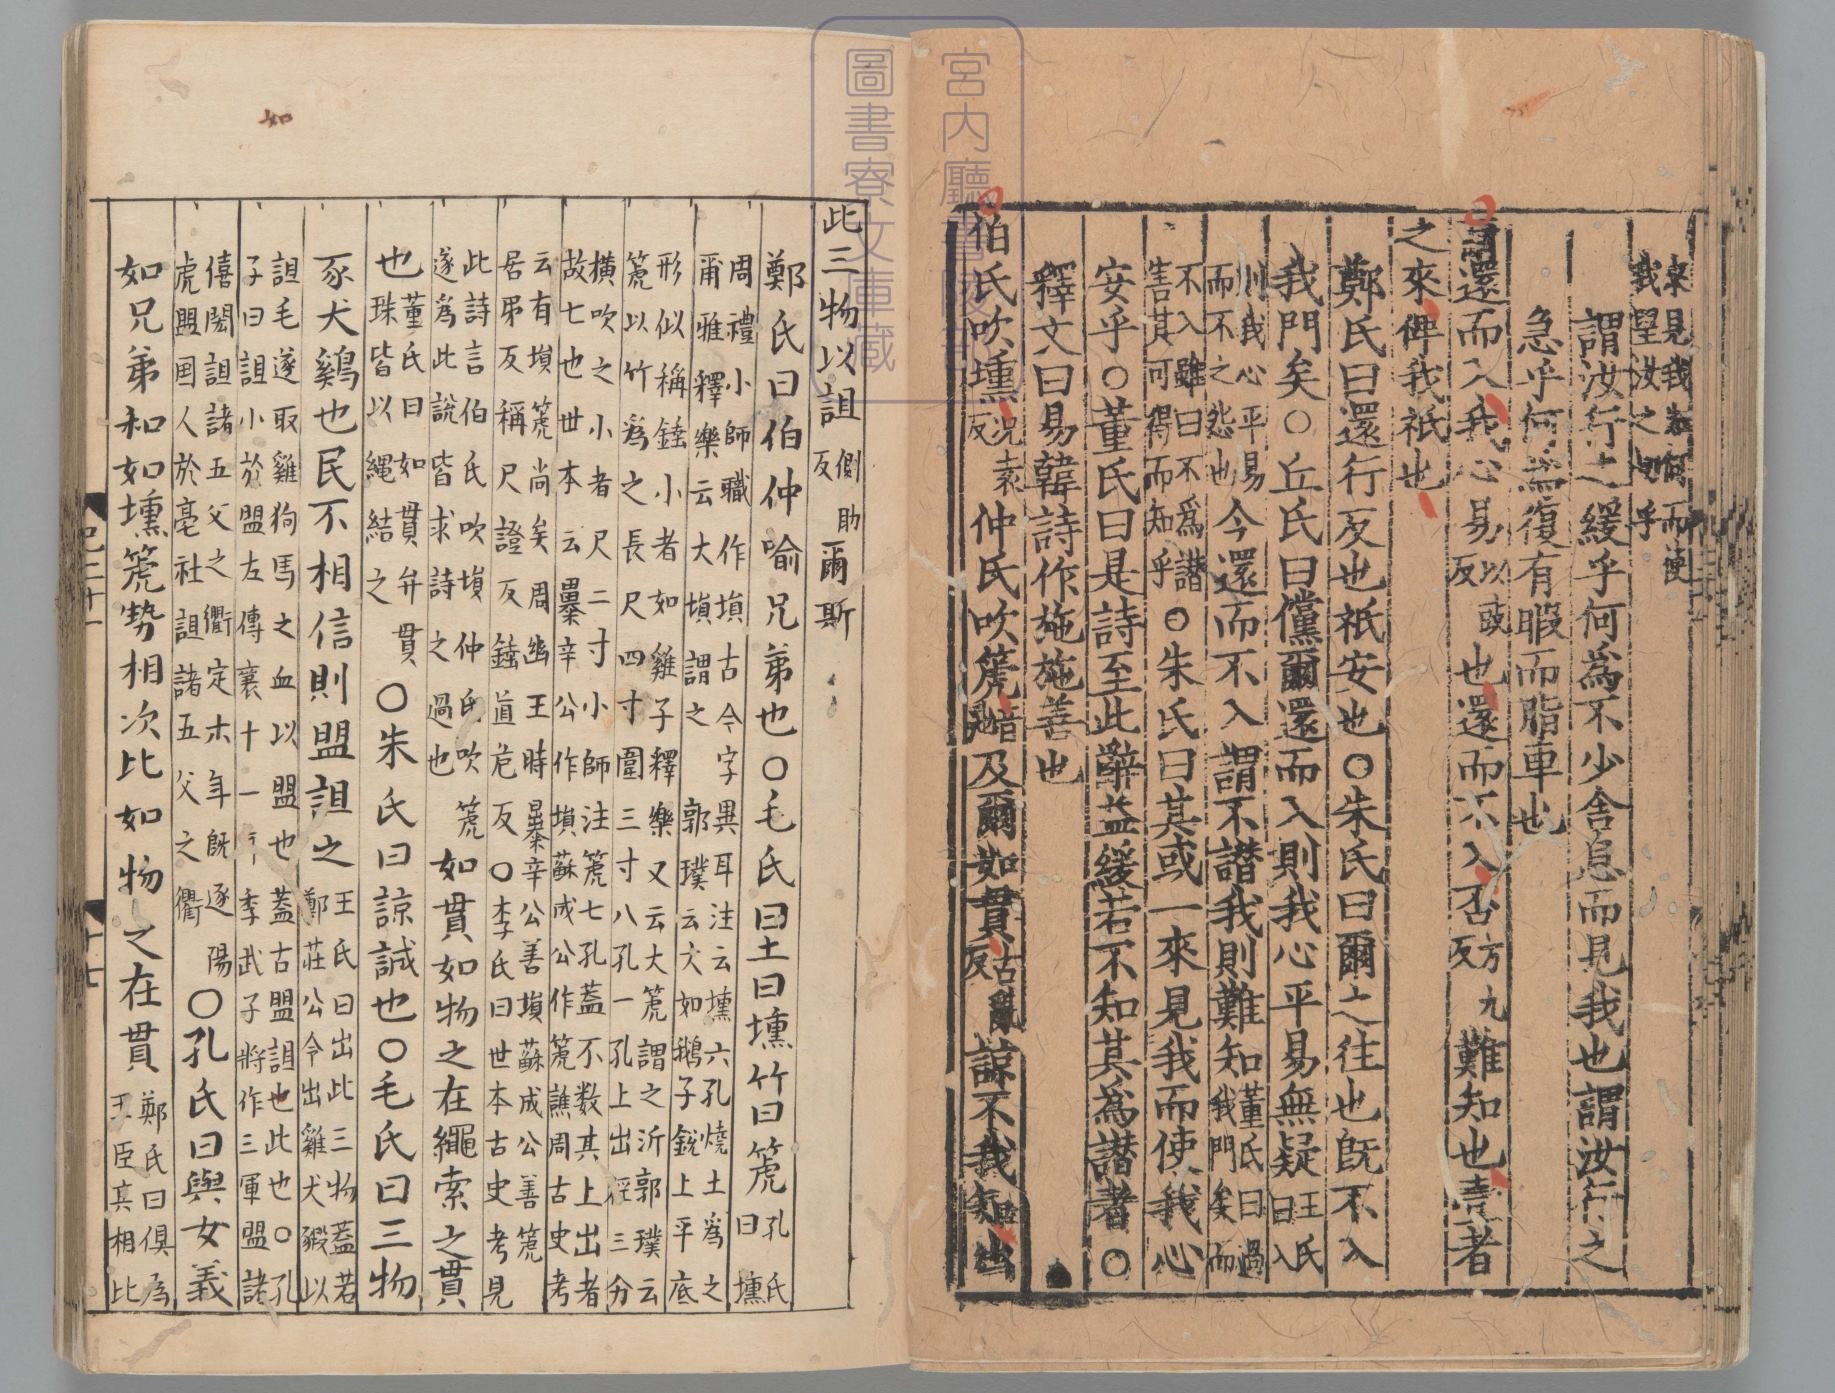 來見我者何而使我望汝之切乎
謂汝行之緩乎何為不少舍息而見我也謂汝行之
急乎何為復有暇而脂車也
爾還而入我心易以豉反也還而不入否方九反難知也壹者
之來俾我祇也
鄭氏曰還行反也祇安也○朱氏曰爾之往也旣不入
我門矣○丘氏曰儻爾還而入則我心平易無疑王氏曰入
則我心平易而不之怨也今還而不入謂不譖我則難知董氏曰過我門矣而
不入雖曰不為譖害其可得而知乎○朱氏曰其或一來見我而使我心
安乎○董氏曰是詩至此辭益緩若不知其為譖者○
釋文曰易韓詩作施施善也
伯氏吹壎況袁反仲氏吹篪音池及爾如貫古亂反諒不我知出
此三物以詛側助反爾斯
鄭氏曰伯仲喻兄弟也○毛氏曰土曰壎竹曰篪孔氏曰壎
周禮小師職作塤古今字異耳注云壎六孔燒土爲之爾雅釋樂云大塤謂之郭璞云大如鵝子銳上平底
形似稱錘小者如雞子釋樂又云大篪謂之沂郭璞云篪以竹爲之長尺四寸圍三寸八孔一孔上出徑三分
橫吹之小者尺二寸小師注篪七孔蓋不数其上出者故七也世本云㬥辛公作塤蘇成公作篪譙周古史考
云有塤篪尚矣周幽王時㬥辛公善塤蘇成公善篪居弟反稱尺證反錘直危反○李氏曰世本古史考見
此詩言伯氏吹塤仲氏吹篪遂爲此說皆求詩之過也如貫如物之在繩索之貫
也董氏曰如貫弁貫也珠皆以縄結之○朱氏曰諒誠也○毛氏曰三物
豕犬鷄也民不相信則盟詛之王氏曰出此三物蓋若鄭莊公令出雞犬豭以
詛毛遂取雞狗馬之血以盟也蓋古盟詛也此也○孔子曰詛小於盟左傳襄十一年季武子將作三軍盟諸
僖閎詛諸五父之衢定六年旣逐陽虎盟国人於亳社詛諸五父之衢○孔氏曰與女義
如兄弟和如壎篪勢相次比如物之在貫鄭氏曰俱為王臣其相比